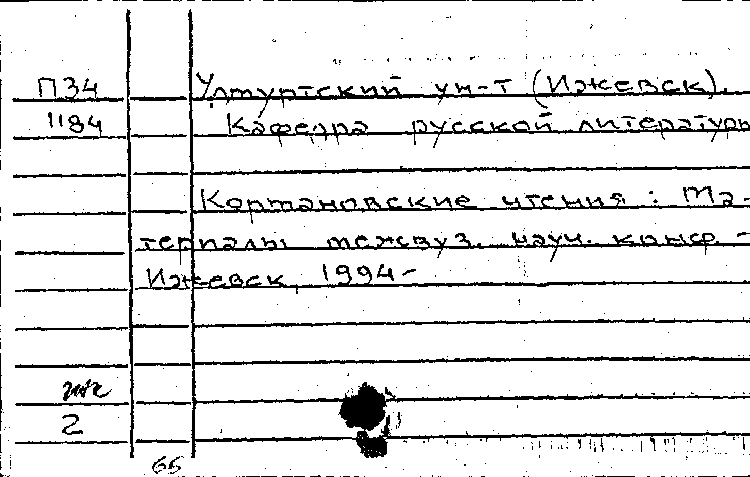 П34 Удмуртский ун-т (Ижевск).
1184 Кафедра русской литературы
Кормановские чтения : Ма-
териалы межвуз. науч. конф. -
Ижевск, 1994-
2
66